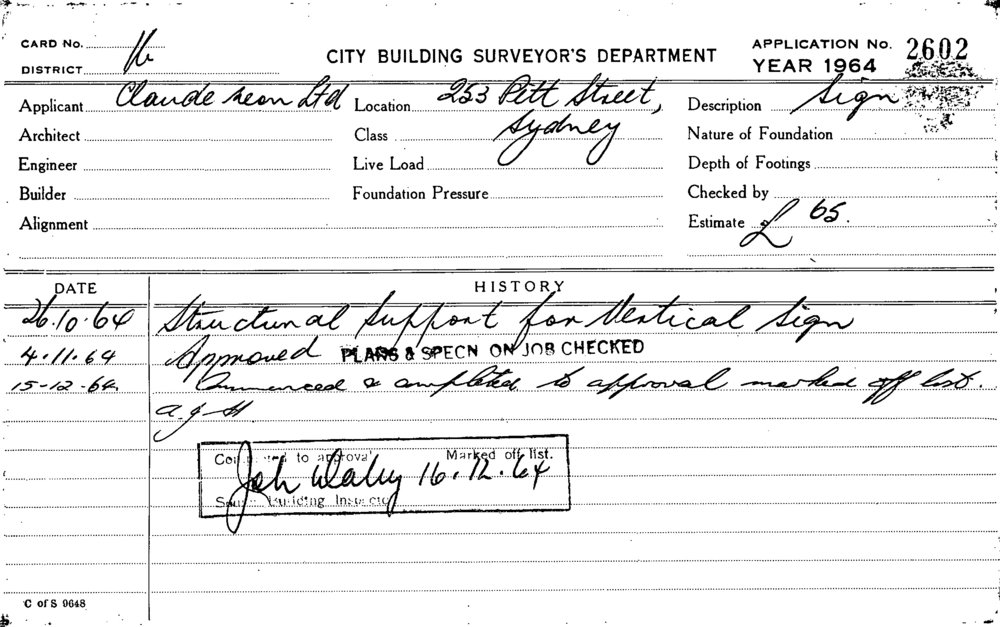 CARD No.
DISTRICT
CITY BUILDING SURVEYOR'S DEPARTMENT
APPLICATION No. 2602
YEAR 1964
Applicant Claude Neon Ltd Location 253 Pitt Street, Description Sign
Architect Class Sydney Nature of Foundation
Engineer Live Load Depth of Footings
Builder Foundation Pressure Checked by
Alignment Estimate £ 65.
DATE HISTORY
26.10.64 Structural Support for Vertical Sign
4.11.64 Approved PLANS & SPECN ON JOB CHECKED
15-12-64. Commenced & completed to approval marked off list.
Completed to approval Marked off list.
16.12.64
Building Inspector
C of S 9648